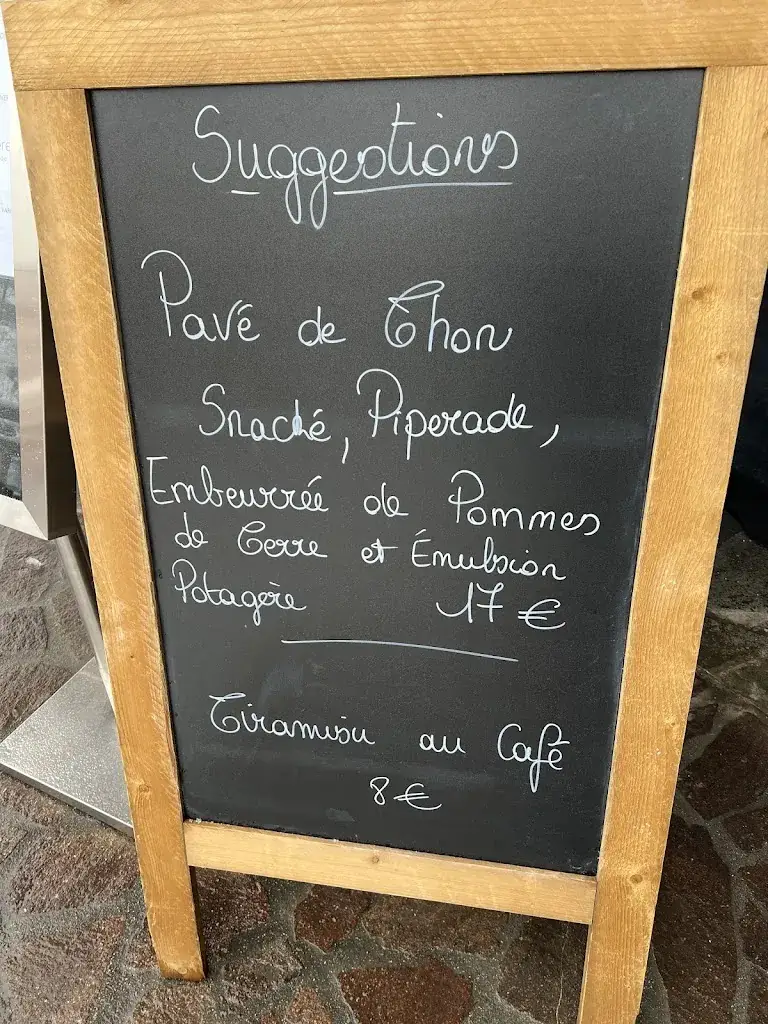 Suggestions
Pavé de Thon
Snacké, Piperade,
Embeurrée de Pommes
de Terre et Émulsion
Potagère 17 €
Tiramisu au Café
8 €